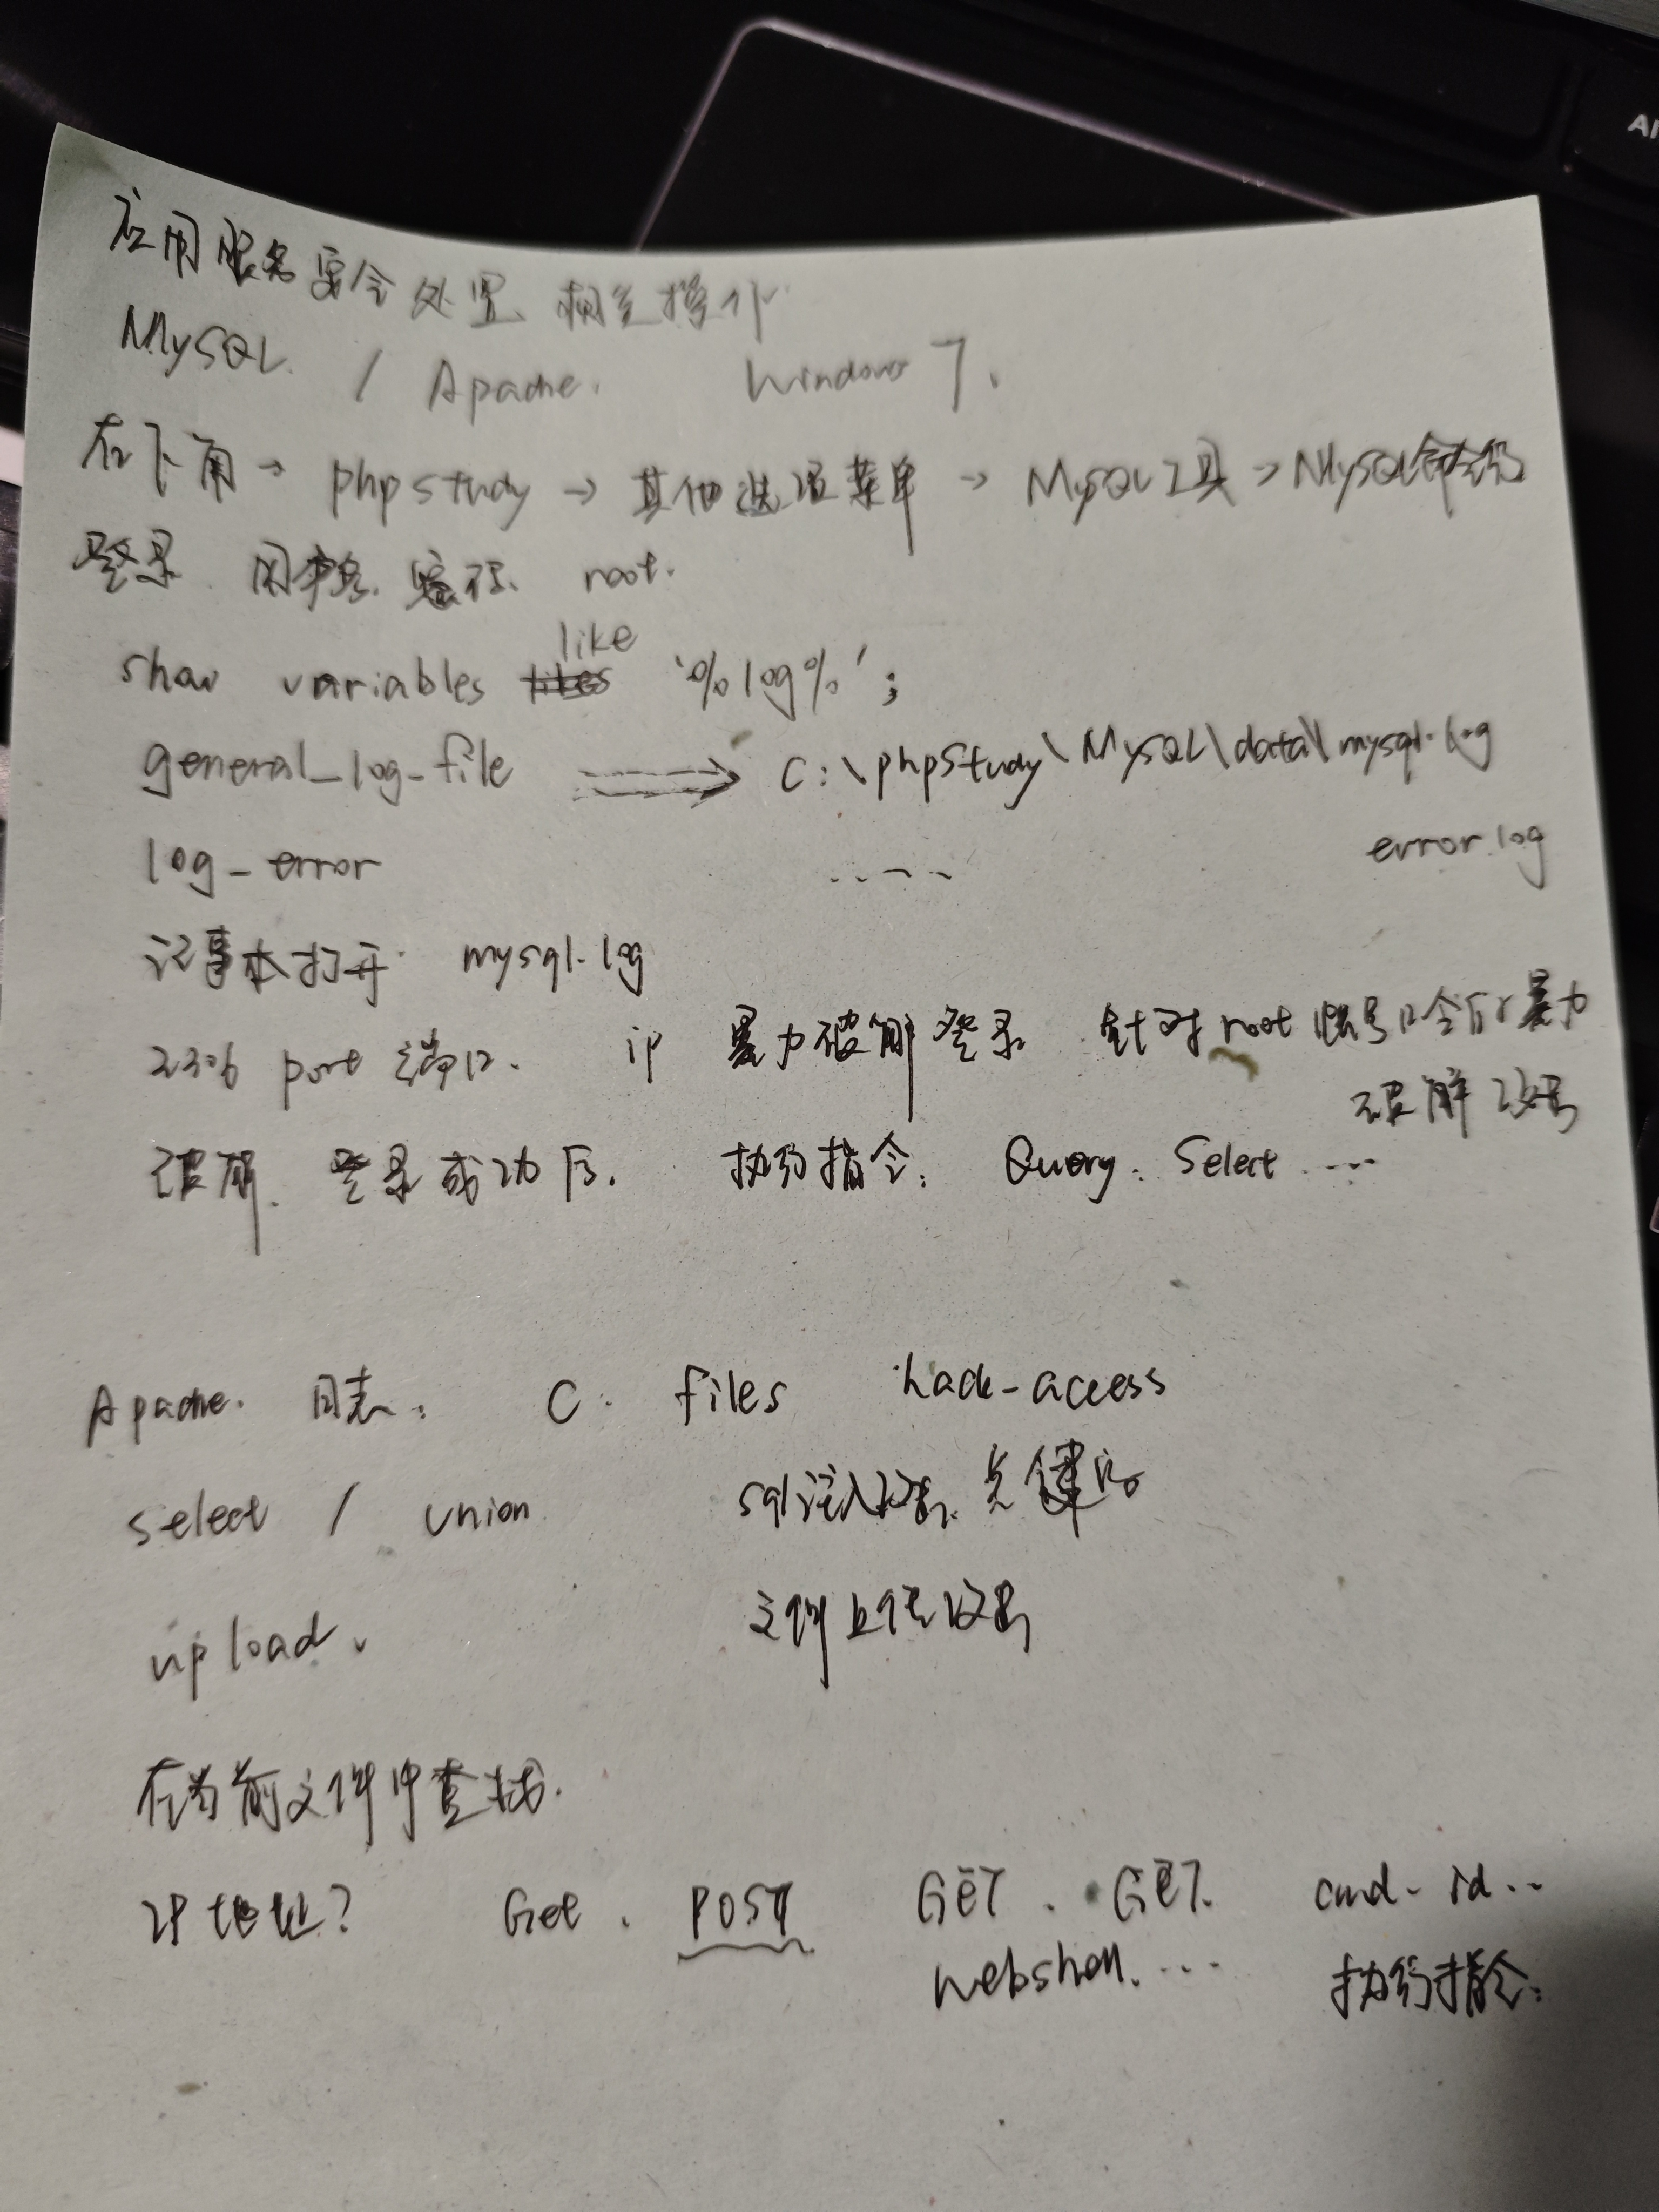 应用服务安全处置、相关操作
MySQL / Apache. Windows 7.
右下角 → phpstudy → 其他选项菜单 → MySQL工具 → MySQL命令行
登录 密码 root.
show variables like '%log%';
general_log_file ⟹ C:\phpStudy\MySQL\data\mysql.log
log-error ..... error.log
记事本打开 mysql.log
2306 port 端口. ip 暴力破解登录 针对root 账号口令行暴力
破解攻击
破解、登录成功后. 执行指令: Query: Select ....
Apache. 日志: C: files hack-access
select / union sql注入攻击、关键的
upload. 文件上传攻击
在当前文件中查找.
IP地址? Get . POST GET . GET. cmd - id..
webshell. ... 执行指令: